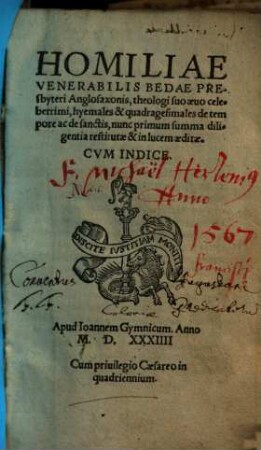 HOMILIAE
VENERABILIS BEDAE PRE-
sbyteri Anglosaxonis, theologi suo æuo cele-
berrimi, hyemales & quadragesimales de tem
pore ac de sanctis, nunc primum summa dili
gentia restitutæ & in lucem æditæ.
CVM INDICE.
F. Michaël
Anno
1567
DISCITE IVSTITIAM MONITI
Conuentus
Coloniæ
Apud Ioannem Gymnicum. Anno
M. D. XXXIIII
Cum priuilegio Cæsareo in
quadriennium.